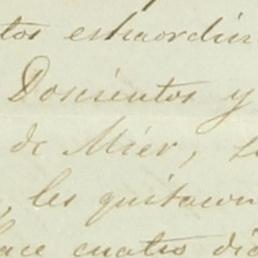 tos estraordin
Doscientos y
de Mier,
, les quitaron
hace cuatro dia